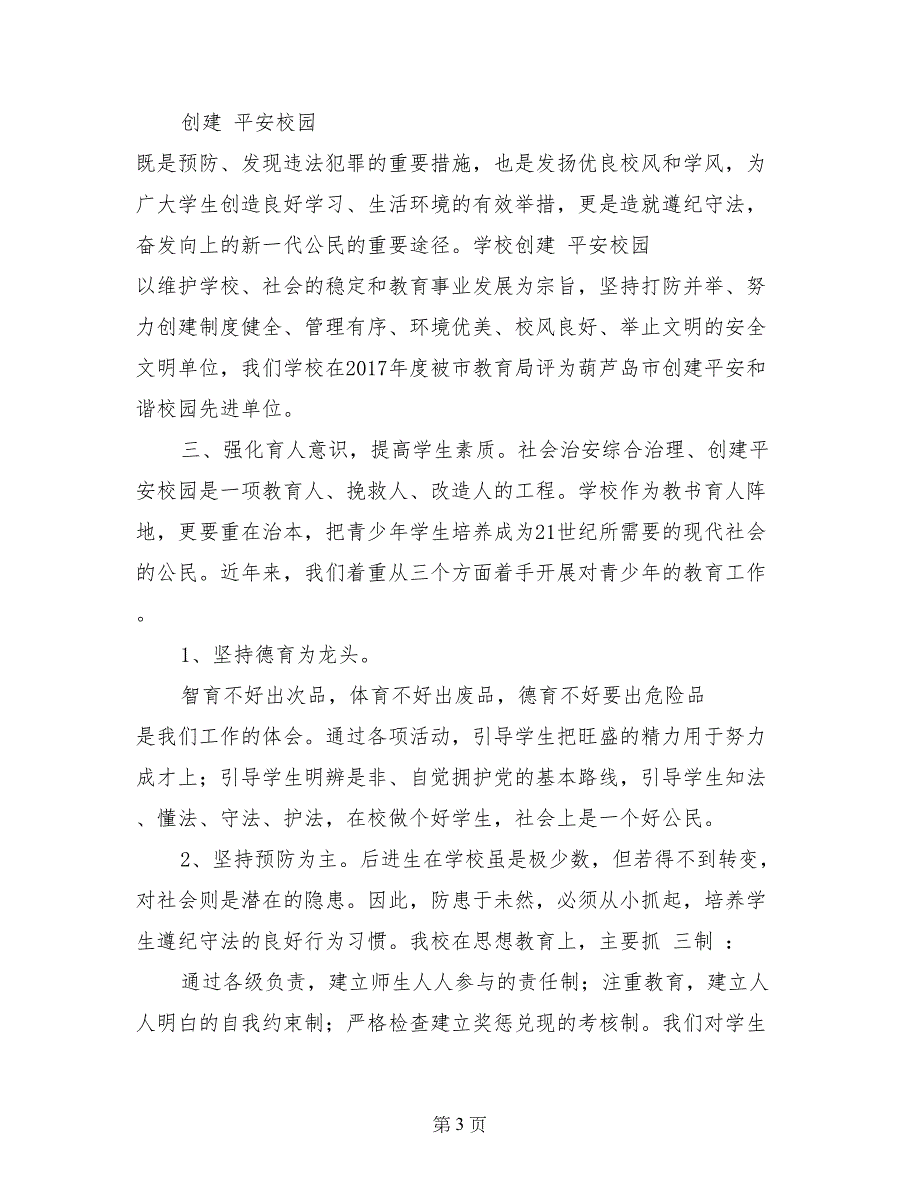 创建 平安校园
既是预防、发现违法犯罪的重要措施，也是发扬优良校风和学风，为
广大学生创造良好学习、生活环境的有效举措，更是造就遵纪守法，
奋发向上的新一代公民的重要途径。学校创建 平安校园
以维护学校、社会的稳定和教育事业发展为宗旨，坚持打防并举、努
力创建制度健全、管理有序、环境优美、校风良好、举止文明的安全
文明单位，我们学校在2017年度被市教育局评为葫芦岛市创建平安和
谐校园先进单位。
三、强化育人意识，提高学生素质。社会治安综合治理、创建平
安校园是一项教育人、挽救人、改造人的工程。学校作为教书育人阵
地，更要重在治本，把青少年学生培养成为21世纪所需要的现代社会
的公民。近年来，我们着重从三个方面着手开展对青少年的教育工作
。
1、坚持德育为龙头。
智育不好出次品，体育不好出废品，德育不好要出危险品
是我们工作的体会。通过各项活动，引导学生把旺盛的精力用于努力
成才上；引导学生明辨是非、自觉拥护党的基本路线，引导学生知法
、懂法、守法、护法，在校做个好学生，社会上是一个好公民。
2、坚持预防为主。后进生在学校虽是极少数，但若得不到转变，
对社会则是潜在的隐患。因此，防患于未然，必须从小抓起，培养学
生遵纪守法的良好行为习惯。我校在思想教育上，主要抓 三制 ：
通过各级负责，建立师生人人参与的责任制；注重教育，建立人
人明白的自我约束制；严格检查建立奖惩兑现的考核制。我们对学生
第 3 页